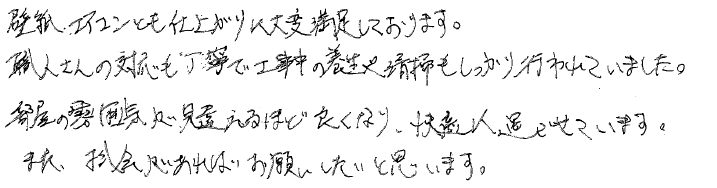 壁紙、エアコンとも仕上がりに大変満足しております。
職人さんの対応も丁寧で工事中の養生や清掃もしっかり行われていました。
部屋の雰囲気が見違えるほど良くなり、快適に過ごせています。
また、機会があればお願いしたいと思います。